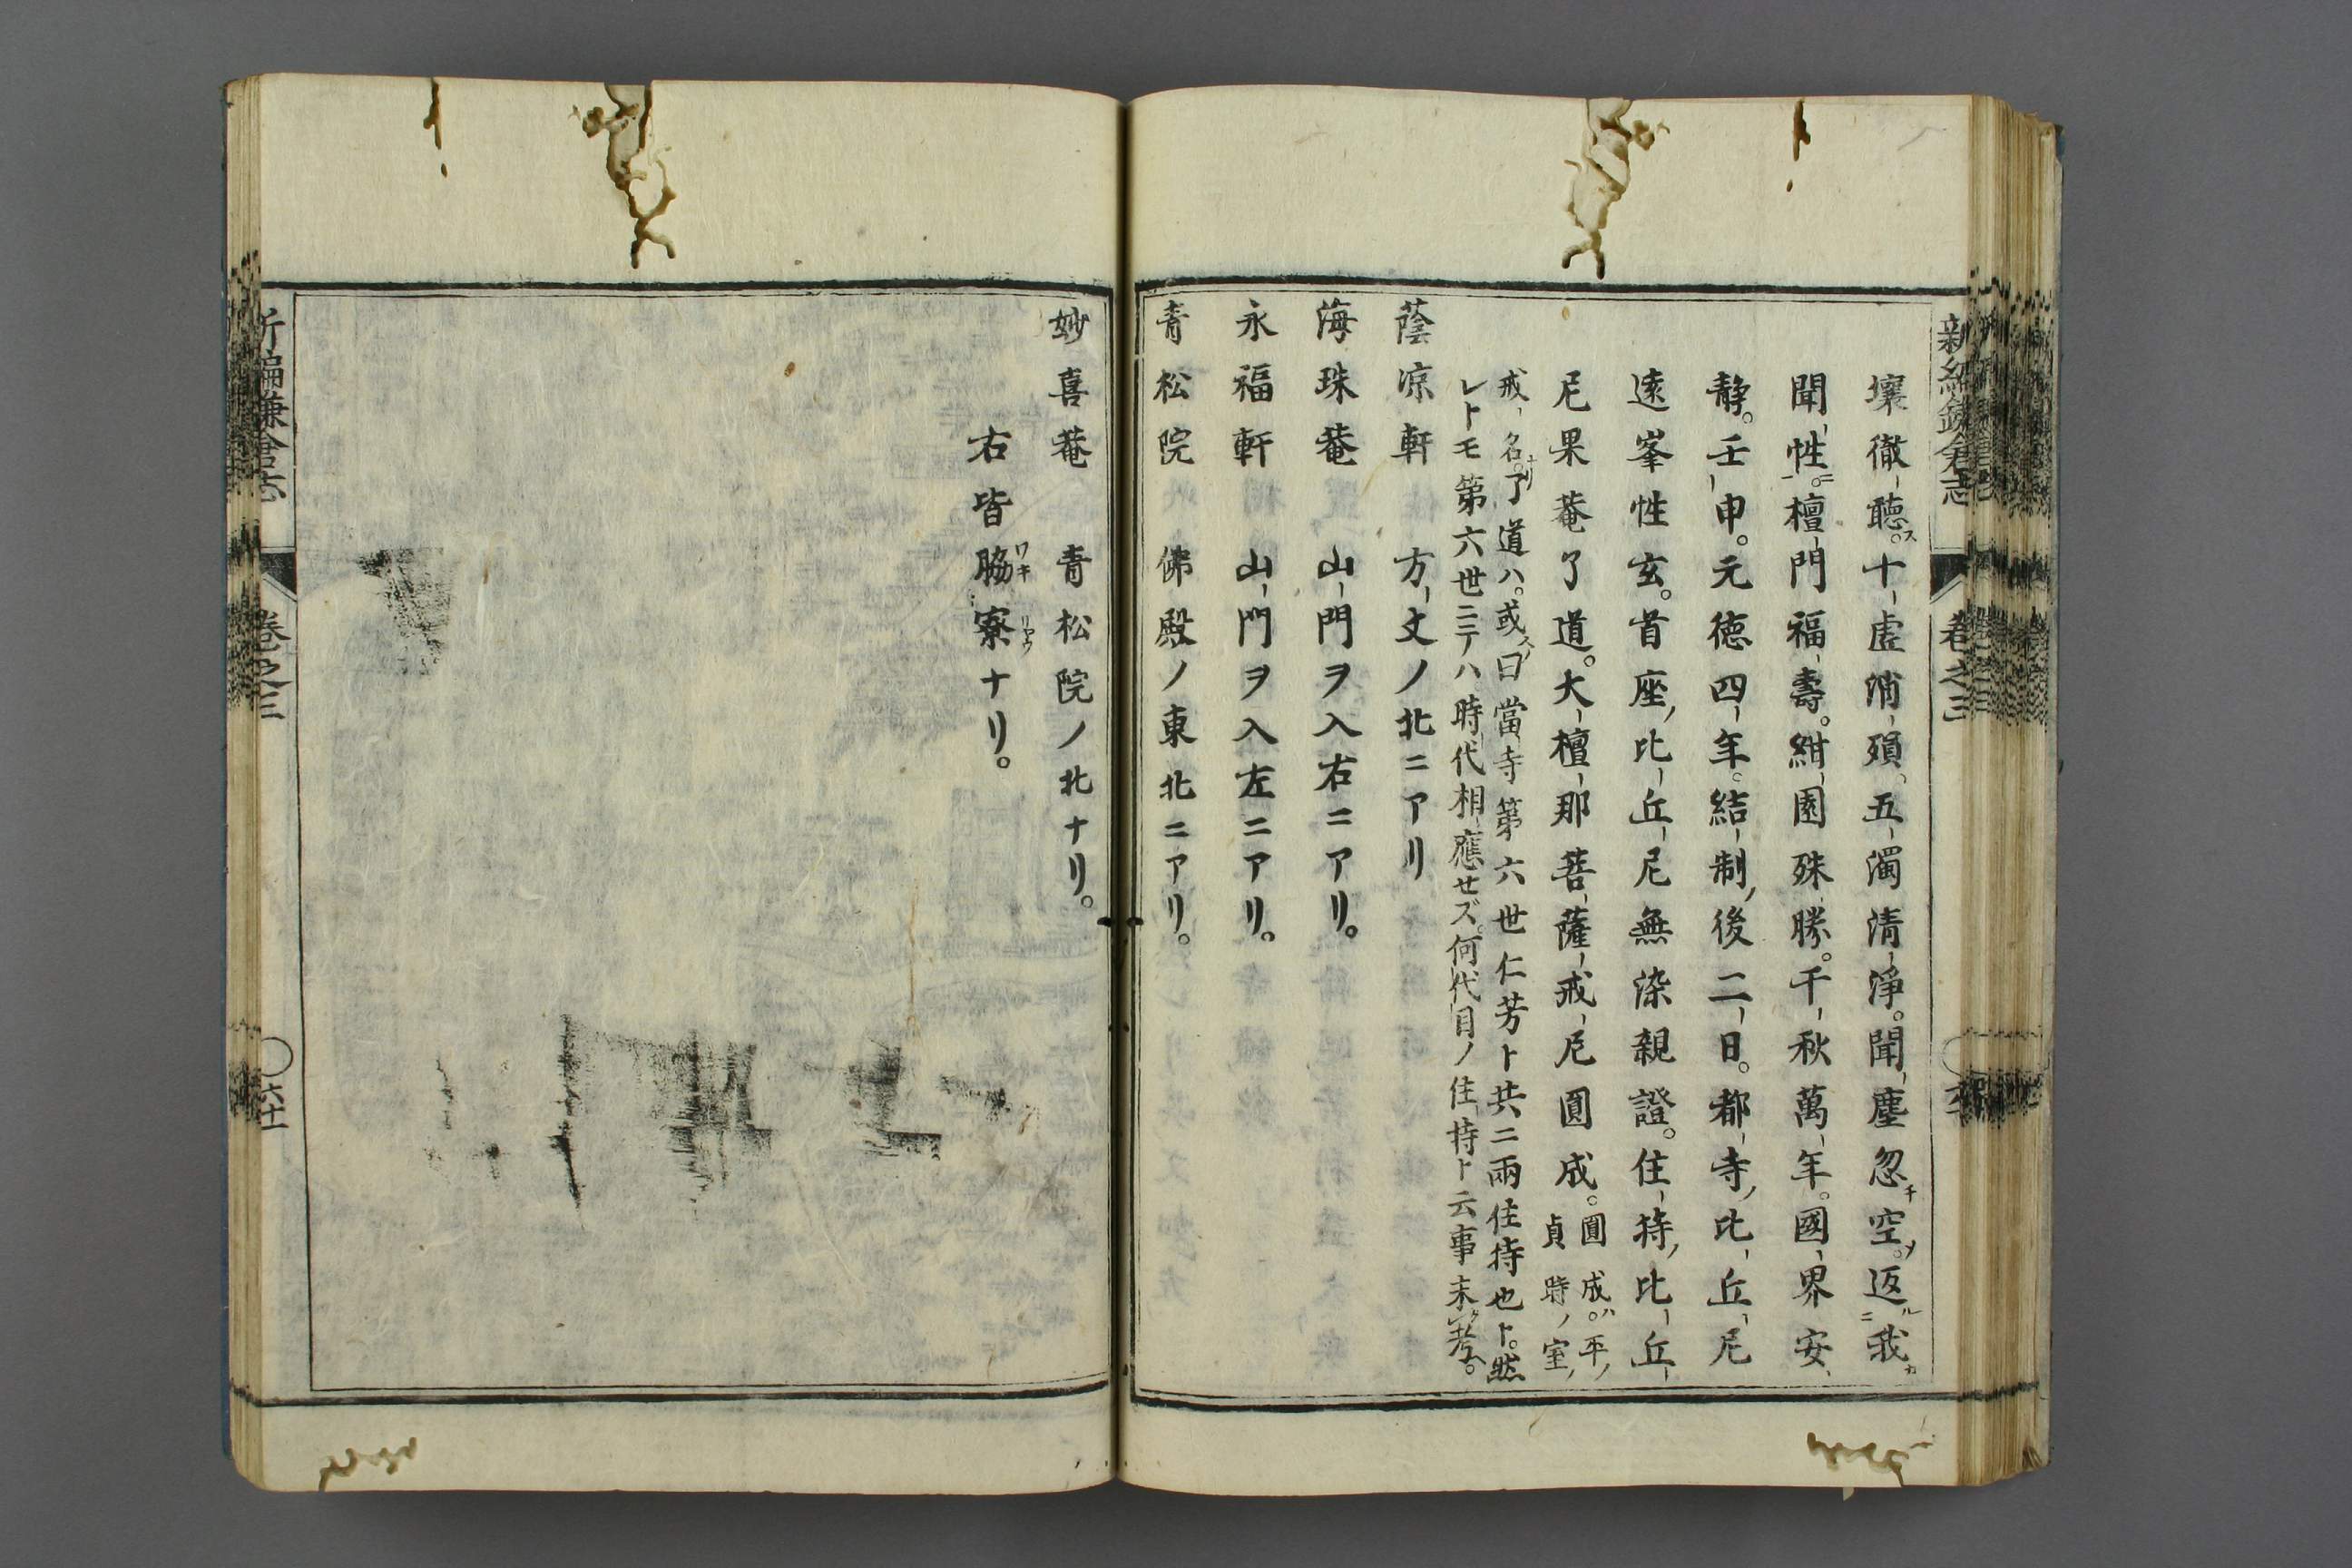 新編鎌倉志
卷之三
壤徹聽ス。十虛消殞。五濁清淨。聞塵忽チ空ソ。返ル我カ
聞性ニ。檀門福壽。紺園殊勝。千秋萬年。國界安
靜。壬申。元德四年。結制ノ後二日。都寺ノ比丘尼
遠峯性玄。首座ノ比丘尼無染親證。住持ノ比丘
尼果菴了道。大檀那菩薩戒尼圓成。圓成ハ。平ノ
貞時ノ室ノ
戒名ナリ。了道ハ。或ノ曰當寺第六世仁芳ト共ニ兩住持也ト。然
レトモ第六世ニテハ時代相應セズ。何代目ノ住持ト云事未タ考ヘ。
蔭凉軒　方丈ノ北ニアリ
海珠菴　山門ヲ入右ニアリ。
永福軒　山門ヲ入左ニアリ。
青松院　佛殿ノ東北ニアリ。
妙喜菴　青松院ノ北ナリ。
右皆脇ワキ寮リヤウナリ。
新編鎌倉志
卷之三
六十